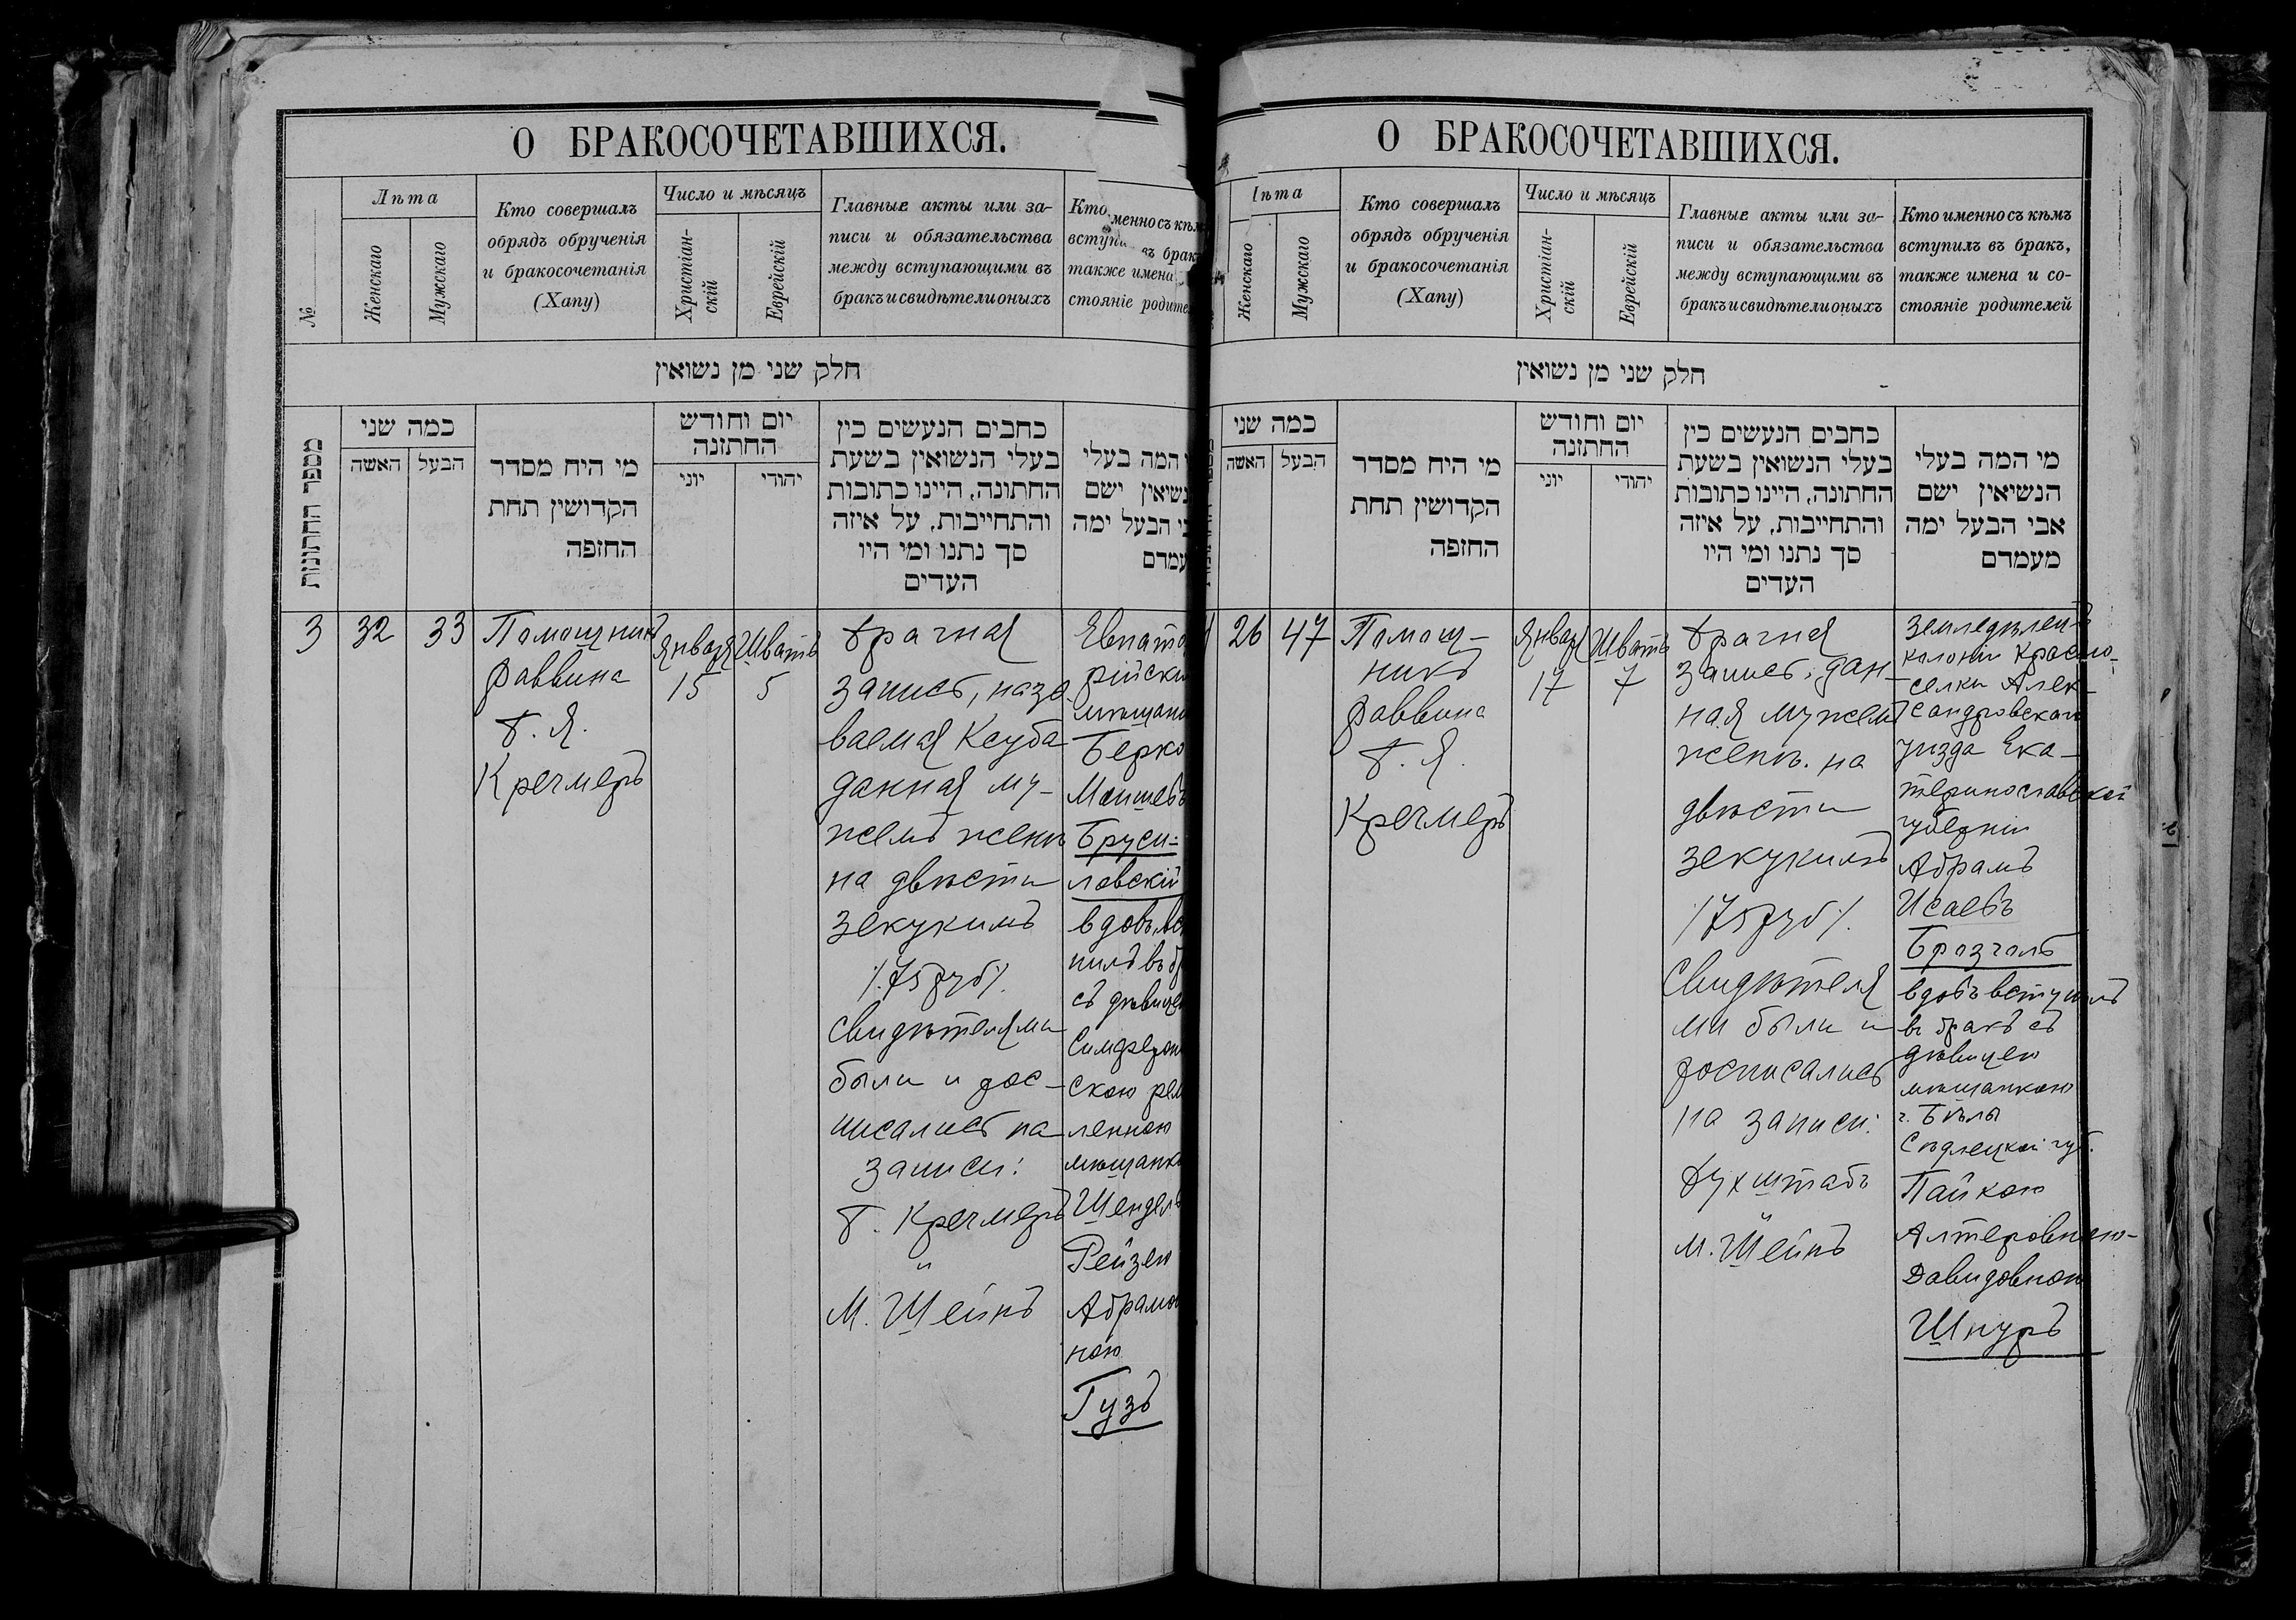 О БРАКОСОЧЕТАВШИХСЯ.
№
Лѣта
Женскаго
Мужскаго
Кто совершалъ
обрядъ обрученія
и бракосочетанія
(Хапу)
Число и мѣсяцъ
Христіан-
скій
Еврейскій
Главные акты или за-
писи и обязательства
между вступающими въ
бракъ и свидѣтели оныхъ
Кто
менно съ кѣм
вступи
въ брак
также имена
стояніе родите
חלק שני מן נשואין
מספר החתונות
כמה שני
האשה
הבעל
מי היח מסדר
הקדושין תחת
החופה
יום וחודש
החתונה
יוני
יהודי
כחבים הנעשים בין
בעלי הנשואין בשעת
החתונה, היינו כתובות
והתחייבות, על איזה
סך נתנו ומי היו
העדים
המה בעלי
נשיאין ישם
בי הבעל ימה
עמדם
3
32
33
Помощникъ
раввина
Б. Я.
Кречмеръ
Января
15
Шватъ
5
брачная
запись, назы
ваемая Ксуба
данная му-
жемъ женѣ
на двѣсти
зекукимъ
/.75 руб/.
Свидѣтелями
были и рос-
писались на
записи:
Б. Кречмеръ
и
М. Шейнъ
Евпато
рійскі
мѣщани
Берко
Мошевъ
Бруси=
ловскій
вдовъ вс
пилъ въ б
съ дѣвице
Симфероп
скою рем
ленною
мѣщанк
Шендель
Рейзею
Абрамо
ною
Гузъ
О БРАКОСОЧЕТАВШИХСЯ.
ѣта
Женскаго
Мужскаго
Кто совершалъ
обрядъ обрученія
и бракосочетанія
(Хапу)
Число и мѣсяцъ
Христіан-
скій
Еврейскій
Главные акты или за-
писи и обязательства
между вступающими въ
бракъ и свидѣтели оныхъ
Кто именно съ кѣмъ
вступилъ въ бракъ,
также имена и со-
стояніе родителей
חלק שני מן נשואין
כמה שני
האשה
הבעל
מי היח מסדר
הקדושין תחת
החופה
יום וחודש
החתונה
יוני
יהודי
כחבים הנעשים בין
בעלי הנשואין בשעת
החתונה, היינו כתובות
והתחייבות, על איזה
סך נתנו ומי היו
העדים
מי המה בעלי
הנשיאין ישם
אבי הבעל ימה
מעמדם
26
47
Помощ-
никъ
раввина
Б. Я.
Кречмеръ
Января
17
Шватъ
7
брачная
запись, дан-
ная мужемъ
женѣ. на
двѣсти
зекукимъ
/75 руб/.
Свидѣтеля
ми были и
росписались
на записи:
Бухштабъ
и
М. Шейнъ
земледѣлецъ
колоніи Красно-
селки Алек-
сандровскаго
уѣзда Ека-
теринославской
губерніи
Абрамъ
Исаевъ
Бразголь
вдовъ вступилъ
въ бракъ съ
дѣвицею
мѣщанкою
г. Бѣлы
Сѣдлецкой губ.
Пайкою
Алтеровною-
Давидовною
Шнуръ